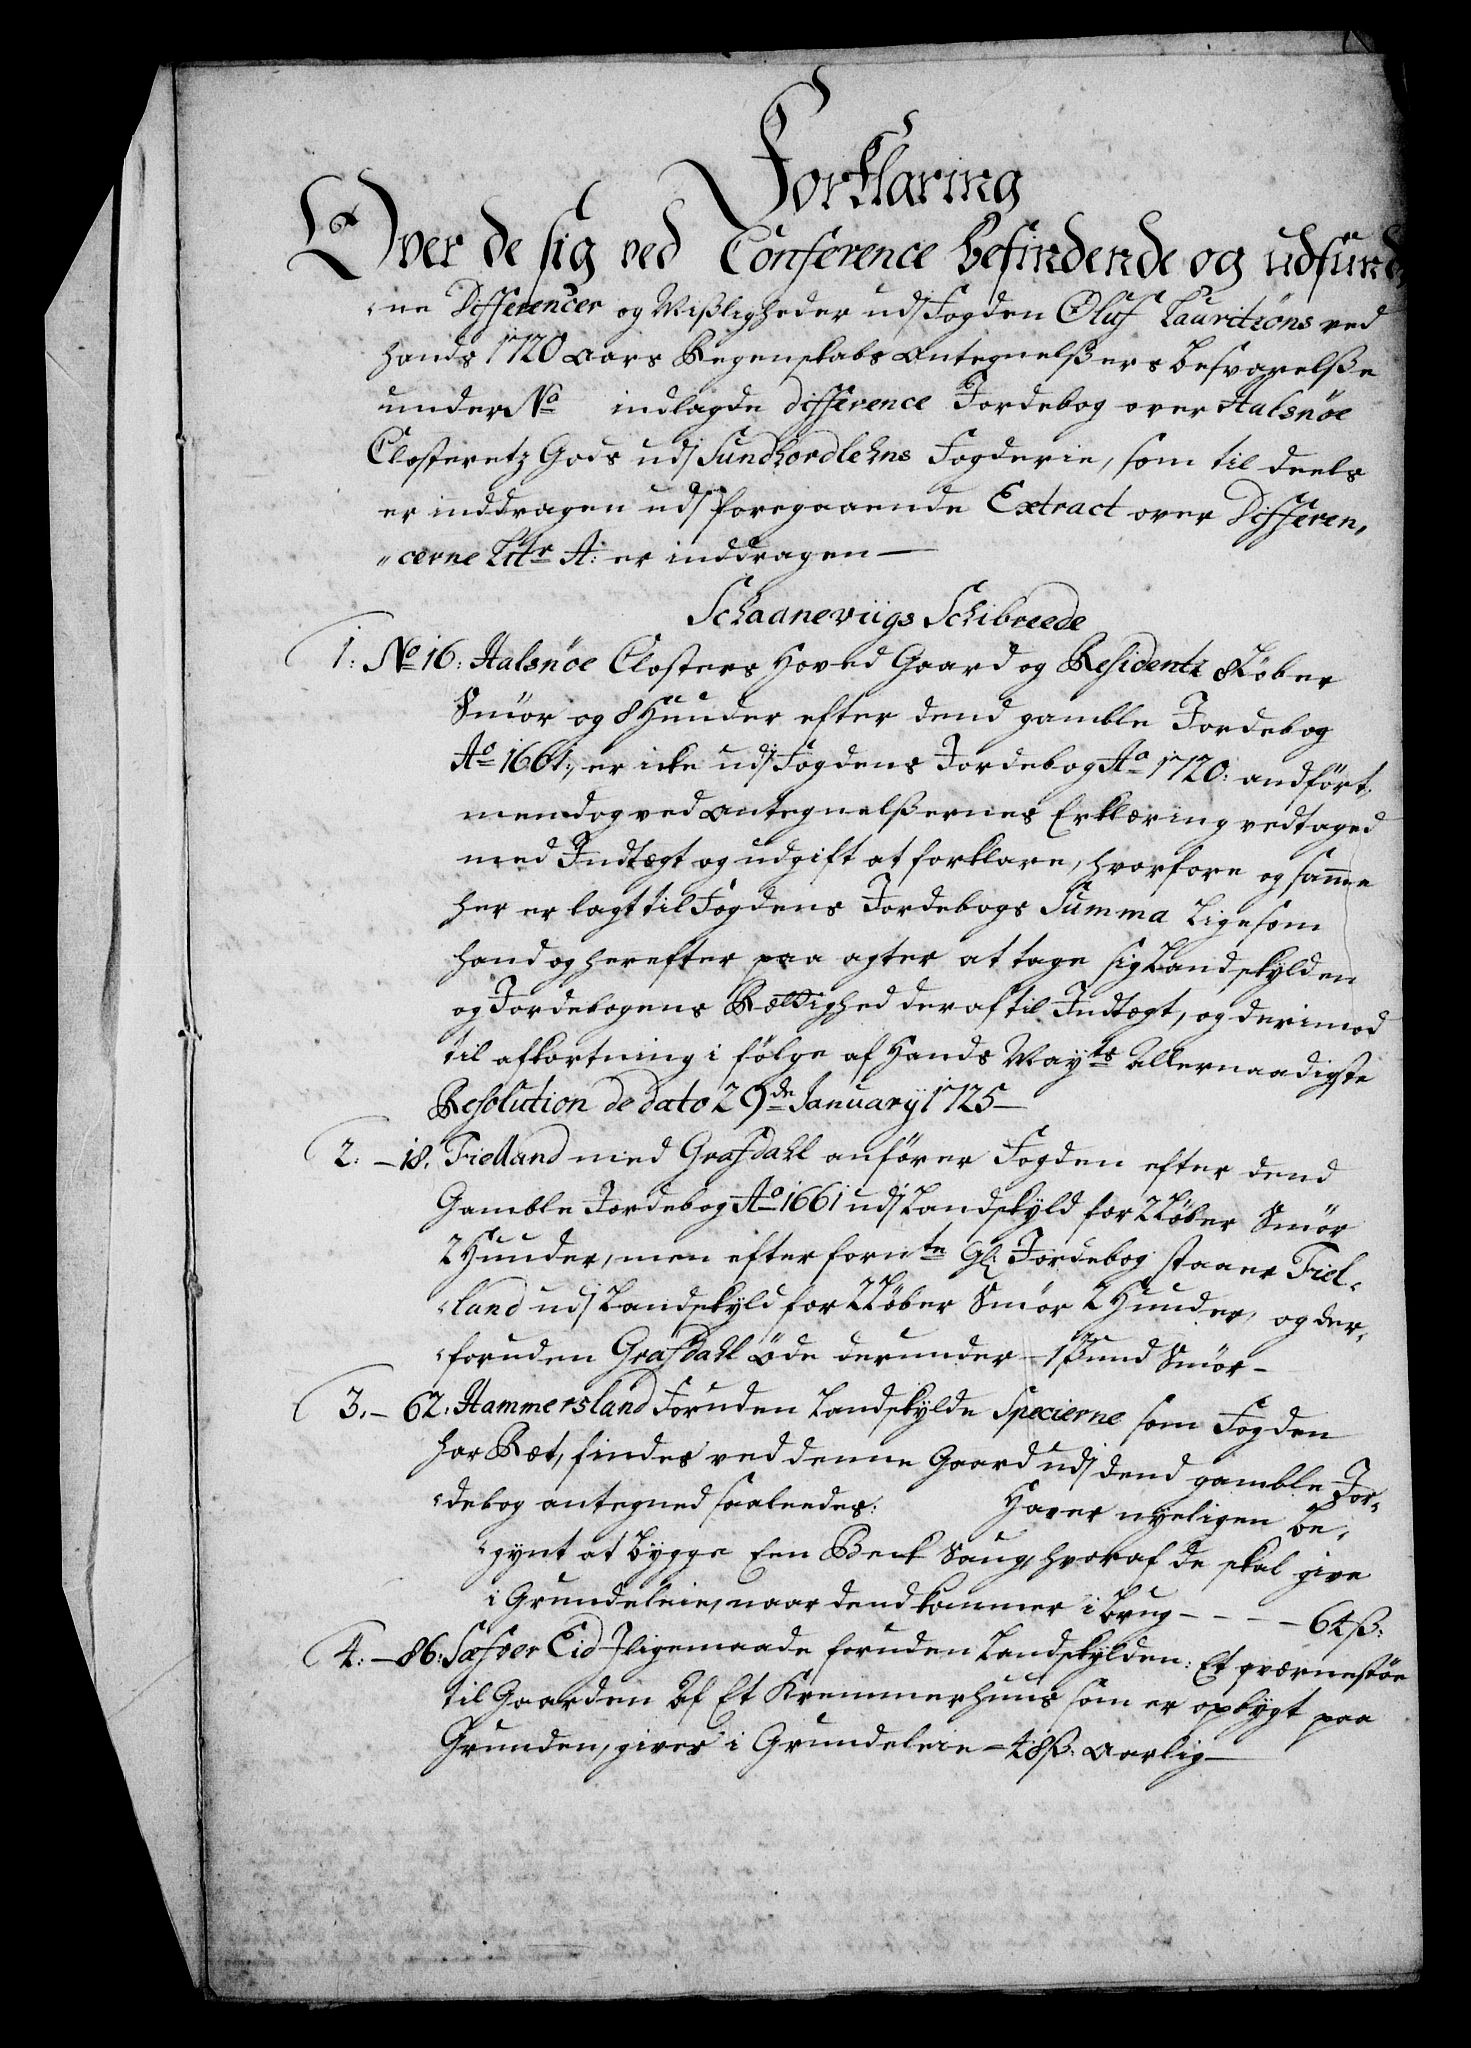 Forklaring
Over de sig ved Conference befindende og udfund-
ne Differencer og Mißligheder udj Fogden Oluf Lauritzöns ved
hands 1720 Aars Regenskabs Antegnelßers besvarelße
under No indlagde difference Jordebog over Halsnöe
Closteretz Gods udj Sundhordlehns Fogderie, som til deels
er inddragen udj foregaaende Extract over Differen,
"cerne Littr A: er inddragen —
Schaaneviigs Schibreede
1: No 16: Halsnöe Closters Hoved Gaard og Residentz 8 Löber
Smör og 8 Huuder efter dend gamble Jordebog
Ao 1661, er icke udj Fogdens Jordebog Ao 1720: andfört,
men dog ved Antegnelßernes Erklæring vedtaged
med Indtægt og udgift at forklare, hvorfore og samme
her er lagt til Fogdens Jordebogs Summa Ligesom
hand og herefter paa agter at tage sig Landskylden
og Jordebogens Rettighed deraf til Indtægt, og derimod
til afkortning i fölge af Hands Mayts Allernaadigste
Resolution de dato 29de January 1725 —
2. — 18. Fielland med Grafdahl anförer Fogden efter dend
Gamble Jordebog Ao 1661 udj Landskyld for 2 Löber Smör
2 Huuder, men efter fornte Gl. Jordebog staaer Fiel-
land udj Landskyld for 2 Löber Smör 2 Huuder, og der,
foruden Grafdahl Öde derunder — 1 Pund Smör —
3. — 62. Hammersland Foruden Landskylde Specierne som Fogden
har Ræt, findes ved denne Gaard udj dend gamble Jor-
debog antegned saaleedes: Haver nyeligen be,
gynt at bygge Een Beck Saug, hvoraf de skal give
i Grundeleie, naar dend kommer i brug — — — — 64 ß:
4: — 86: Sæfver Eid Jligemaade foruden Landskylden: Et qværnestöe
til Gaarden Af Et Kremmerhuus som er opbygt paa
Grunden, gives i Grundeleie — 48 ß: Aarlig —